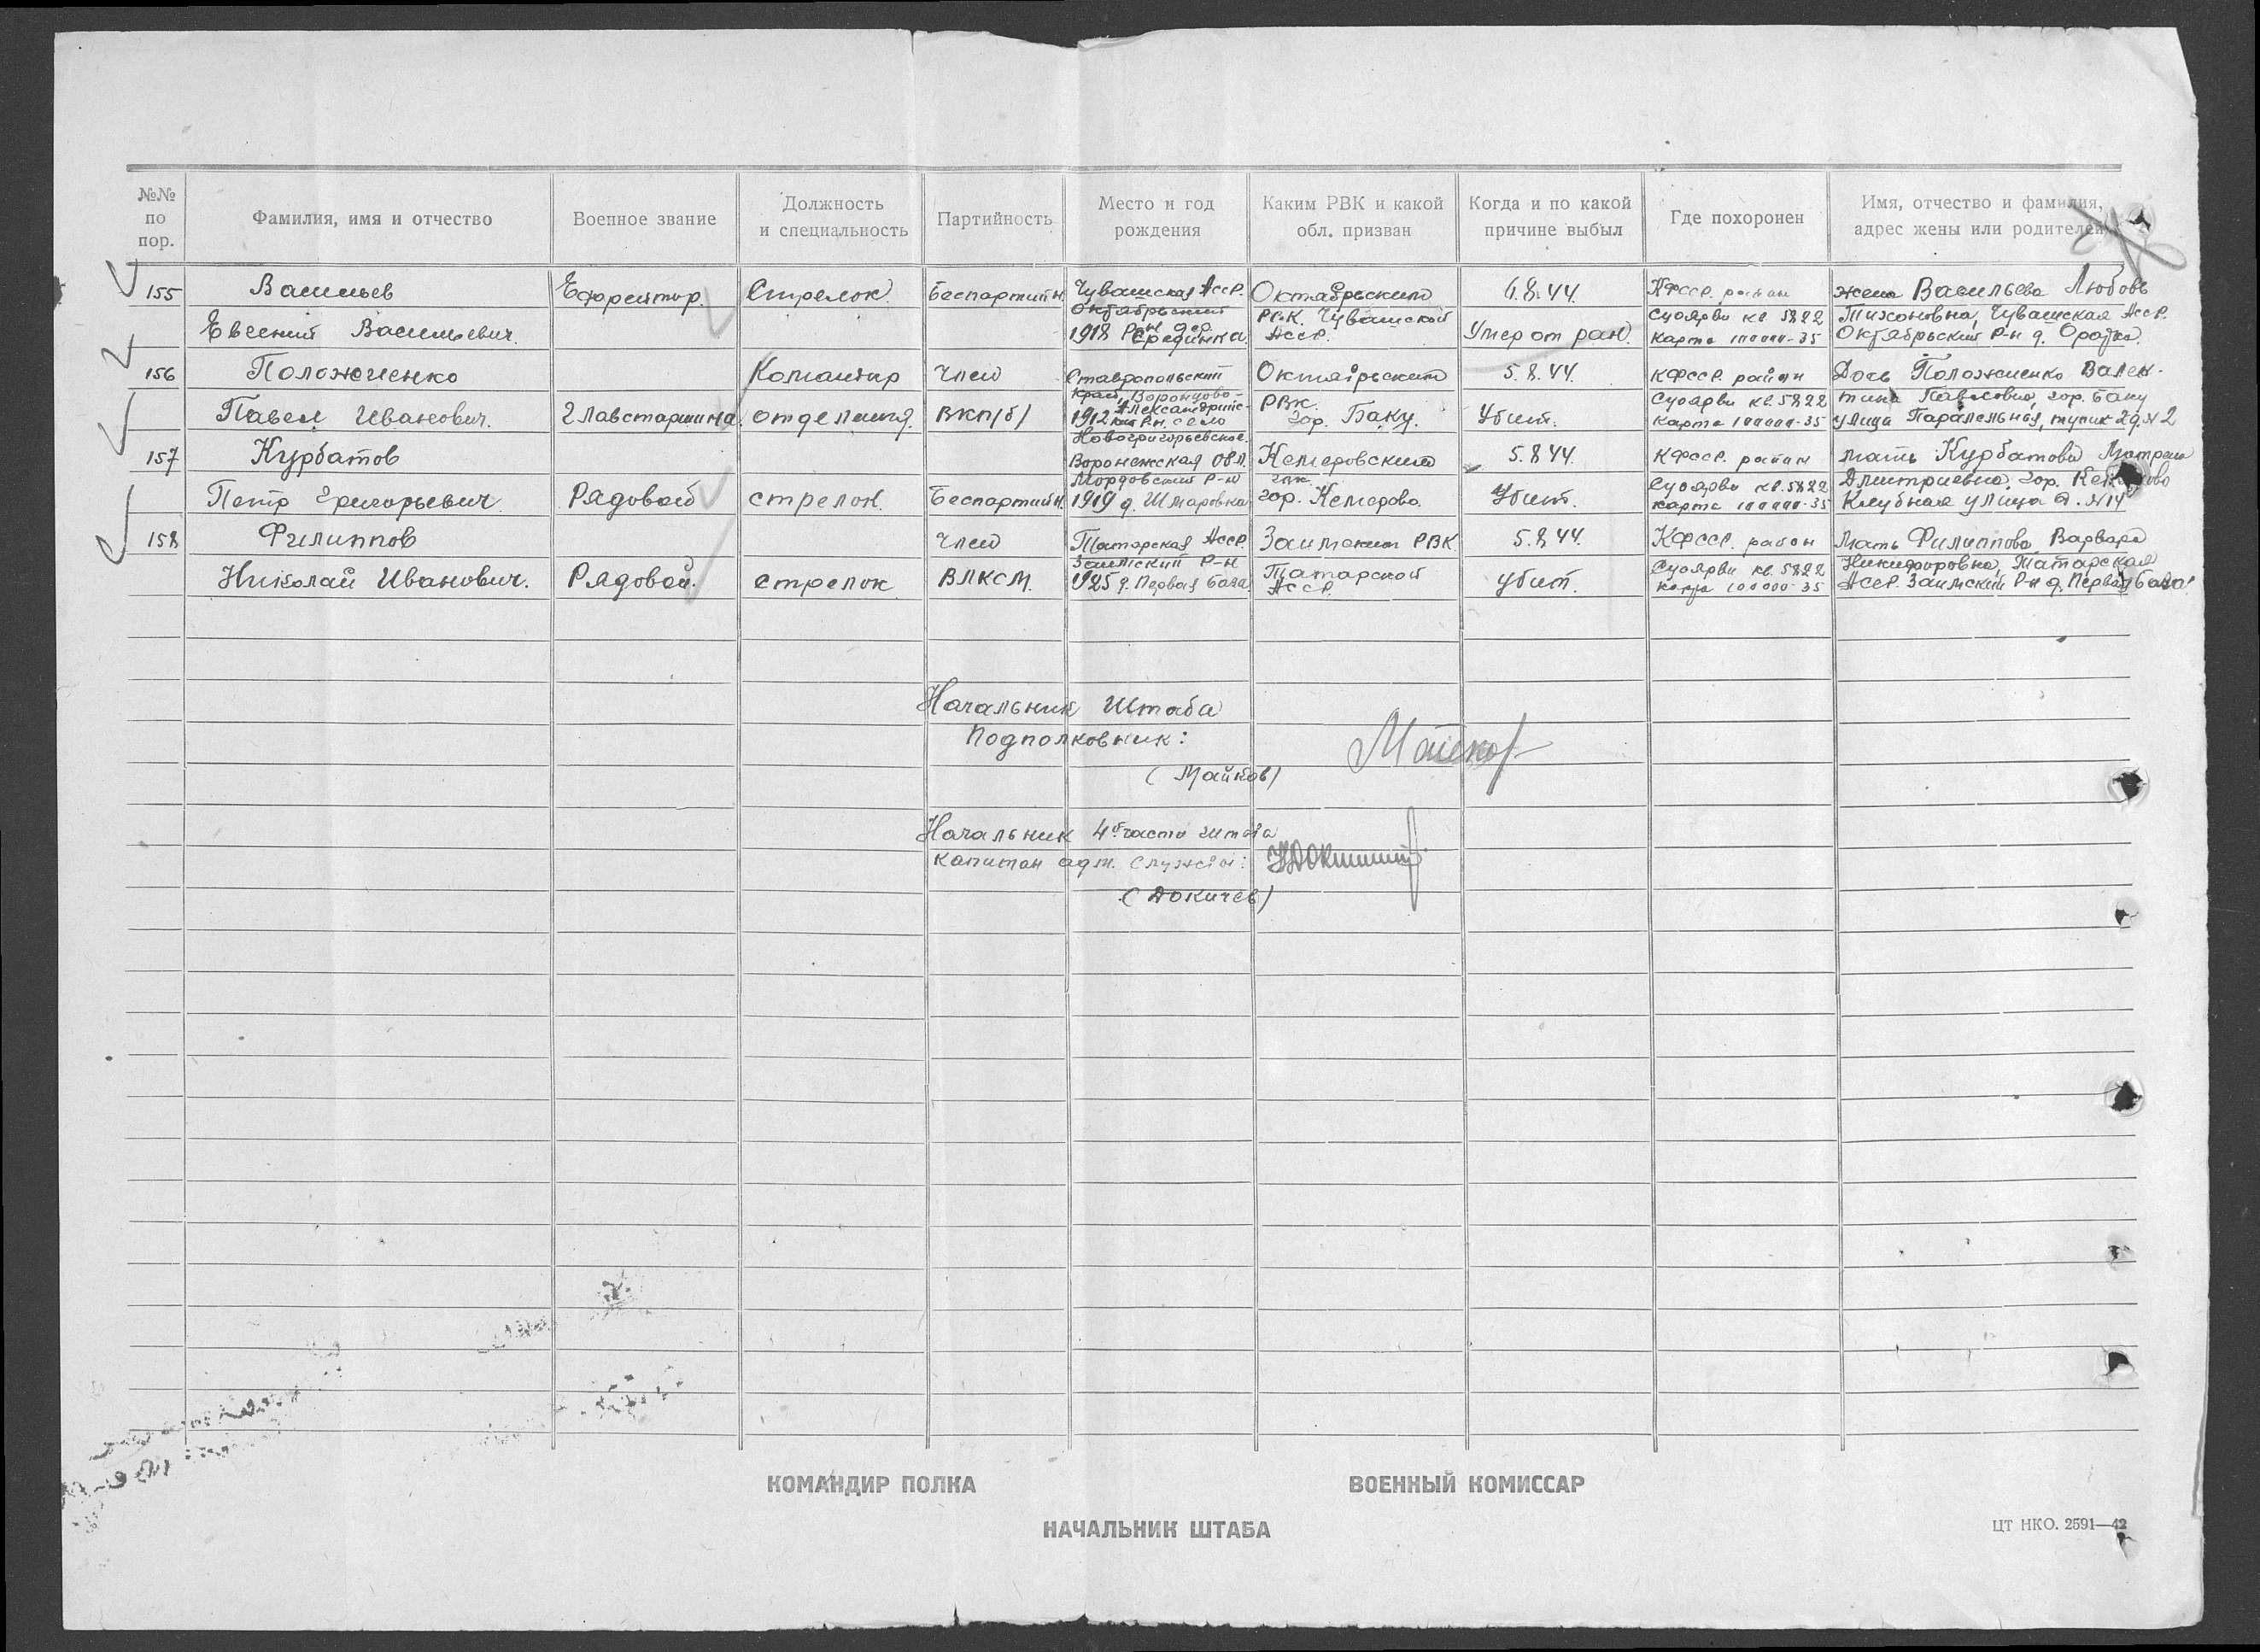 №№ по пор.
Фамилия, имя и отчество
Военное звание
Должность и специальность
Партийность
Место и год рождения
Каким РВК и какой обл. призван
Когда и по какой причине выбыл
Где похоронен
Имя, отчество и фамилия, адрес жены или родителей
155
Васильев
Евгений Васильевич.
Ефрейтор.
Стрелок.
Беспартийн.
Чувашская АССР.
Октябрьский
1918 Р-н дер
Октябрьским
РВК. Чувашской
АССР.
6.8.44.
Умер от ран.
КФССР. район
Суоярви кв 5822
Карта 100000-35
жена Васильева Любовь
Тихоновна, Чувашская АССР.
Октябрьский Р-н д.
156
Положченко
Павел Иванович.
Главстаршина.
Командир
отделения.
Член
ВКП/б/
Ставропольский
Край, Воронцово-
1912 Александрийс-
кий Р-н. село
Новогригорьевское.
Октябрьским
РВК.
гор. Баку.
5.8.44.
Убит.
КФССР. район
Суоярви кв. 5822
Карта 100000-35
Дочь Положченко Вален-
тина Павловна, гор. Баку
улица Паралельная, тупик 2 д. №2
157
Курбатов
Петр Григорьевич.
Рядовой
стрелок.
Беспартийн.
Воронежская Обл.
Мордовский Р-н
1919 д. Шмаровка
Кемеровским
гор. Кемерово.
5.8.44.
Убит.
КФССР. район
Суоярви кв. 5822
карта 100000-35
мать Курбатова Матрена
Дмитриевна, гор. Кемерово
Клубная улица д. №14
158
Филиппов
Николай Иванович.
Рядовой.
стрелок
член
ВЛКСМ.
Татарская АССР.
Заимский Р-н
1925 д. Первая База.
Заимским РВК
Татарской
АССР.
5.8.44.
убит.
КФССР. район
Суоярви кв. 5822
карта 100000-35
Мать Филиппова Варвара
Никифоровна, Татарская
АССР. Заимский Р-н д. Первая База.
Начальник Штаба
Подполковник:
(Майков)
Начальник 4й части штаба
Капитан адм. службы:
(Докичев)
КОМАНДИР ПОЛКА
ВОЕННЫЙ КОМИССАР
НАЧАЛЬНИК ШТАБА
ЦТ НКО. 2591—42